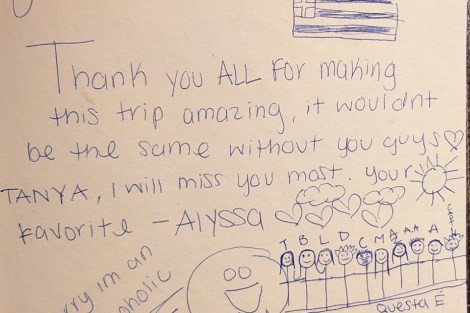 Thank you ALL FOR making
this trip amazing, it wouldnt
be the same without you guys
TANYA, I will miss you most. your
favorite - Alyssa
T B L D C M A A.A A
rry im an
oholic
questa É